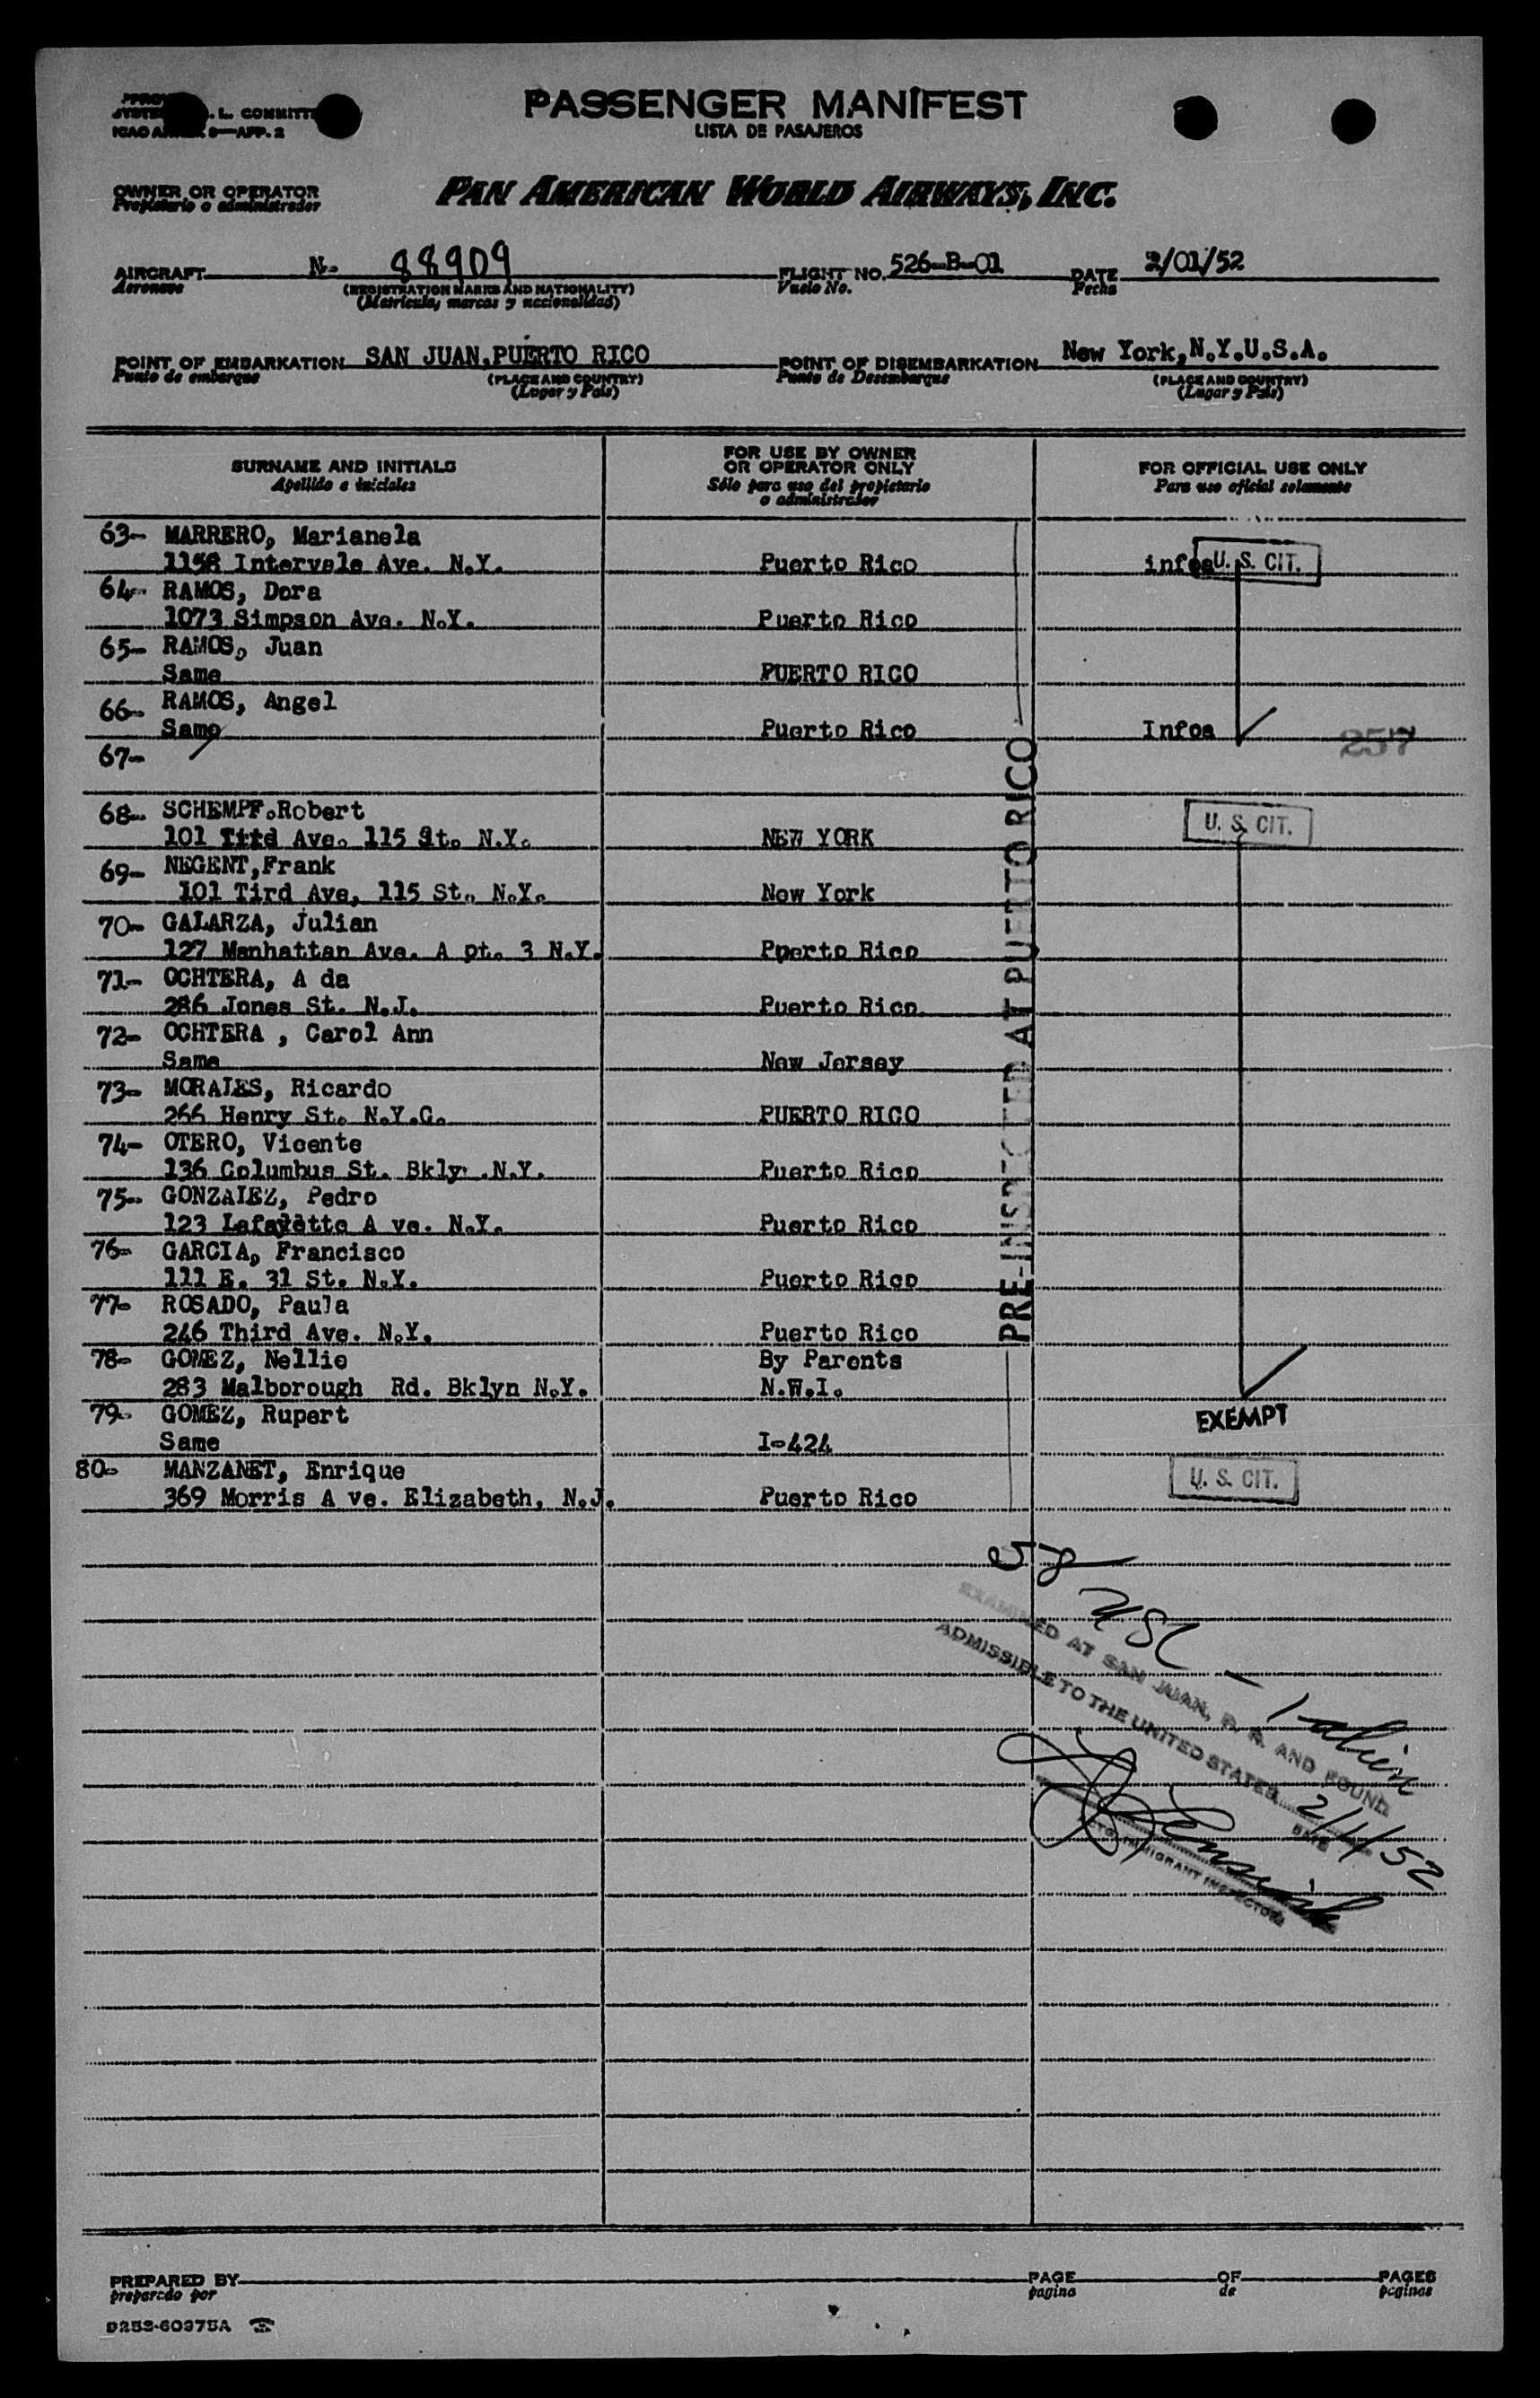 L. COMMITT
ICAO A 9—APP. 2
PASSENGER MANIFEST
LISTA DE PASAJEROS
OWNER OR OPERATOR
Propietario o administrador
PAN AMERICAN WORLD AIRWAYS, INC.
AIRCRAFT N- 88909 FLIGHT NO. 526-B-01 DATE 2/01/52
Aeronave (REGISTRATION MARKS AND NATIONALITY) Vuelo No. Fecha
(Matricula, marcas y nacionalidad)
POINT OF EMBARKATION SAN JUAN,PUERTO RICO POINT OF DISEMBARKATION New York,N.Y.U.S.A.
Punto de embarque (PLACE AND COUNTRY) Punto de Desembarque (PLACE AND COUNTRY)
(Lugar y País) (Lugar y País)
SURNAME AND INITIALS FOR USE BY OWNER OR OPERATOR ONLY FOR OFFICIAL USE ONLY
Apellido e iniciales Sólo para uso del propietario o administrador Para uso oficial solamente
63- MARRERO, Marianela
1158 Intervale Ave. N.Y. Puerto Rico infoa U. S. CIT.
64- RAMOS, Dora
1073 Simpson Ave. N.Y. Puerto Rico
65- RAMOS, Juan
Same PUERTO RICO
66- RAMOS, Angel
Same Puerto Rico Infoa 257
67-
68- SCHEMPF.Robert
101 Tird Ave. 115 St. N.Y. NEW YORK U. S. CIT.
69- NEGENT,Frank
101 Tird Ave, 115 St. N.Y. New York
70- GALARZA, Julian
127 Manhattan Ave. A pt. 3 N.Y. Pperto Rico
71- OCHTERA, A da
286 Jones St. N.J. Puerto Rico
72- OCHTERA , Carol Ann
Same New Jersey
73- MORALES, Ricardo
266 Henry St. N.Y.C. PUERTO RICO
74- OTERO, Vicente
136 Columbus St. Bkly .N.Y. Puerto Rico
75- GONZALEZ, Pedro
123 Lafayette A ve. N.Y. Puerto Rico
76- GARCIA, Francisco
111 E. 31 St. N.Y. Puerto Rico
77- ROSADO, Paula
246 Third Ave. N.Y. Puerto Rico
78- GOMEZ, Nellie By Parents
283 Malborough Rd. Bklyn N.Y. N.W.I.
79- GOMEZ, Rupert EXEMPT
Same I-424
80- MANZANET, Enrique
369 Morris A ve. Elizabeth, N.J. Puerto Rico U. S. CIT.
PRE-INSPECTED AT PUERTO RICO
58 USC - 1 alien
EXAMINED AT SAN JUAN, P. R. AND FOUND
ADMISSIBLE TO THE UNITED STATES 2/1/52
DATE
IMMIGRANT INSPECTOR
PREPARED BY PAGE OF PAGES
preparado por pagina de páginas